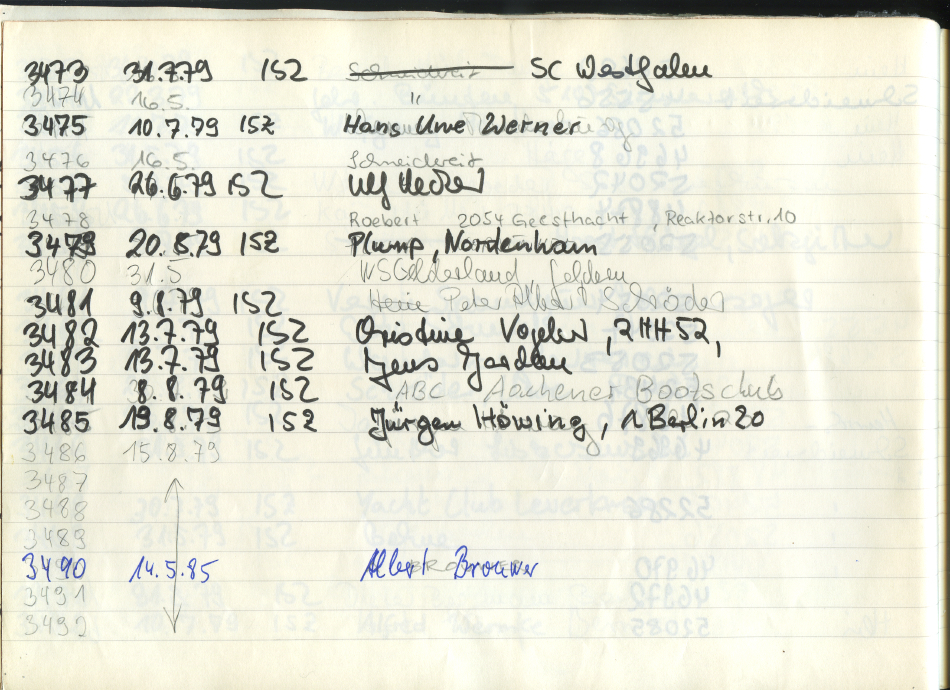 3473 31.7.79 ISZ Schneidereit SC Westfalen
3474 16.5. "
3475 10.7.79 ISZ Hans Uwe Werner
3476 16.5. Schneidereit
3477 26.6.79 ISZ Ulf Hecker
3478 Roebert 2054 Geesthacht, Reaktorstr. 10
3479 20.8.79 ISZ Plump, Nordenham
3480 31.5 WSGelderland Geldern
3481 9.8.79 ISZ Hein Peter Albert Schröder
3482 13.7.79 ISZ Christine Vogler, 2HH52,
3483 13.7.79 ISZ Jens
3484 8.8.79 ISZ ABC Aachener Bootsclub
3485 19.8.79 ISZ Jürgen Höwing, 1 Berlin 20
3486 15.8.79
3487
3488
3489
3490 14.5.85 Albert Brouwer
3491
3492